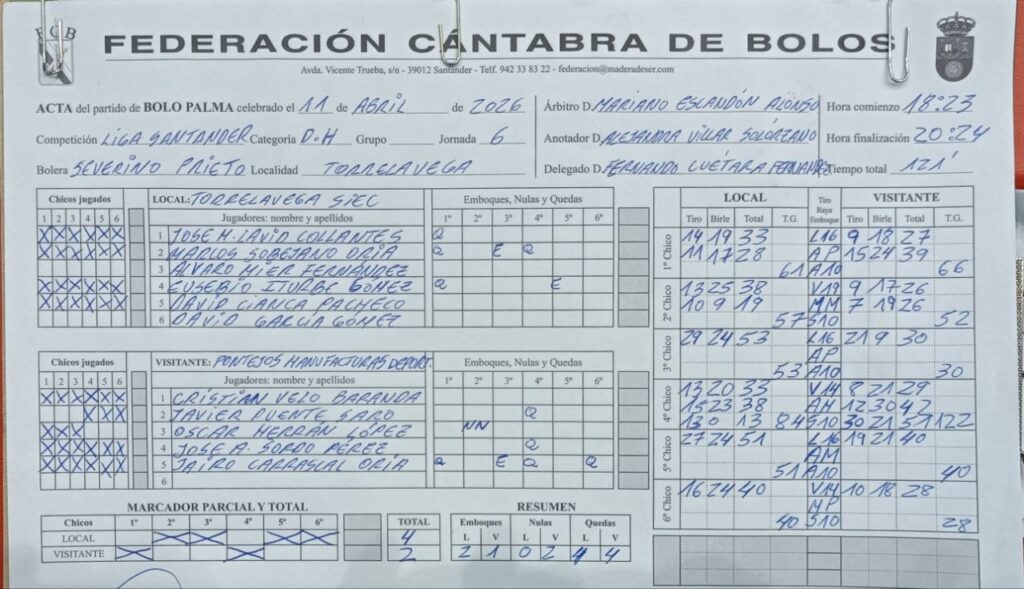 FCB
FEDERACIÓN CÁNTABRA DE BOLOS
Avda. Vicente Trueba, s/n - 39012 Santander - Telf. 942 33 83 22 - federacion@maderadeser.com
ACTA del partido de BOLO PALMA celebrado el 11 de ABRIL de 2026
Competición LIGA SANTANDER Categoría D.H Grupo Jornada 6
Bolera SEVERINO PRIETO Localidad TORRELAVEGA
Árbitro D. MARIANO ESLANDÓN ALONSO
Anotador D. ALEJANDRA VILLAR SOLÓRZANO
Delegado D. FERNANDO CUÉTARA FERNANDEZ
Hora comienzo 18:23
Hora finalización 20:24
Tiempo total 121'
Chicos jugados LOCAL: TORRELAVEGA SIEC Emboques, Nulas y Quedas
1 2 3 4 5 6 Jugadores: nombre y apellidos 1º 2º 3º 4º 5º 6º
X X X X X X 1 JOSE M. LAVID COLLANTES Q
X X X X X X 2 MARCOS SOBEJANO ORIA Q E Q
3 ALVARO MIER FERNÁNDEZ
X X X X X X 4 EUSEBIO ITURBE GÓMEZ Q E
X X X X X X 5 DAVID CIANCA PACHECO
6 DAVID GARCÍA GÓMEZ
Chicos jugados VISITANTE: PONTEJOS MANUFACTURAS DEPORT. Emboques, Nulas y Quedas
1 2 3 4 5 6 Jugadores: nombre y apellidos 1º 2º 3º 4º 5º 6º
X X X X X X 1 CRISTIAN VELO BARANDA
X X X 2 JAVIER PUENTE SARO Q
X X X 3 OSCAR HERRÁN LÓPEZ NN
X X X X X X 4 JOSE A. SORDO PÉREZ Q
X X X X X X 5 JAIRO CARRASCAL ORIA Q E Q Q
6
MARCADOR PARCIAL Y TOTAL
Chicos 1º 2º 3º 4º 5º 6º TOTAL
LOCAL X X X X 4
VISITANTE X X 2
RESUMEN
Emboques Nulas Quedas
L V L V L V
2 1 0 2 4 4
LOCAL Tiro Raya Emboque VISITANTE
Tiro Birle Total T.G. Tiro Birle Total T.G.
1º Chico
14 19 33 L16 9 18 27
11 17 28 AP 15 24 39
61 A10 66
2º Chico
13 25 38 V19 9 17 26
10 9 19 MM 7 19 26
57 S10 52
3º Chico
29 24 53 L16 21 9 30
AP
53 A10 30
4º Chico
13 20 33 V14 8 21 29
15 23 38 AM 12 30 42
13 0 13 84 S10 30 21 51 122
5º Chico
27 24 51 L16 19 21 40
AM
51 A10 40
6º Chico
16 24 40 V14 10 18 28
MP
40 S10 28